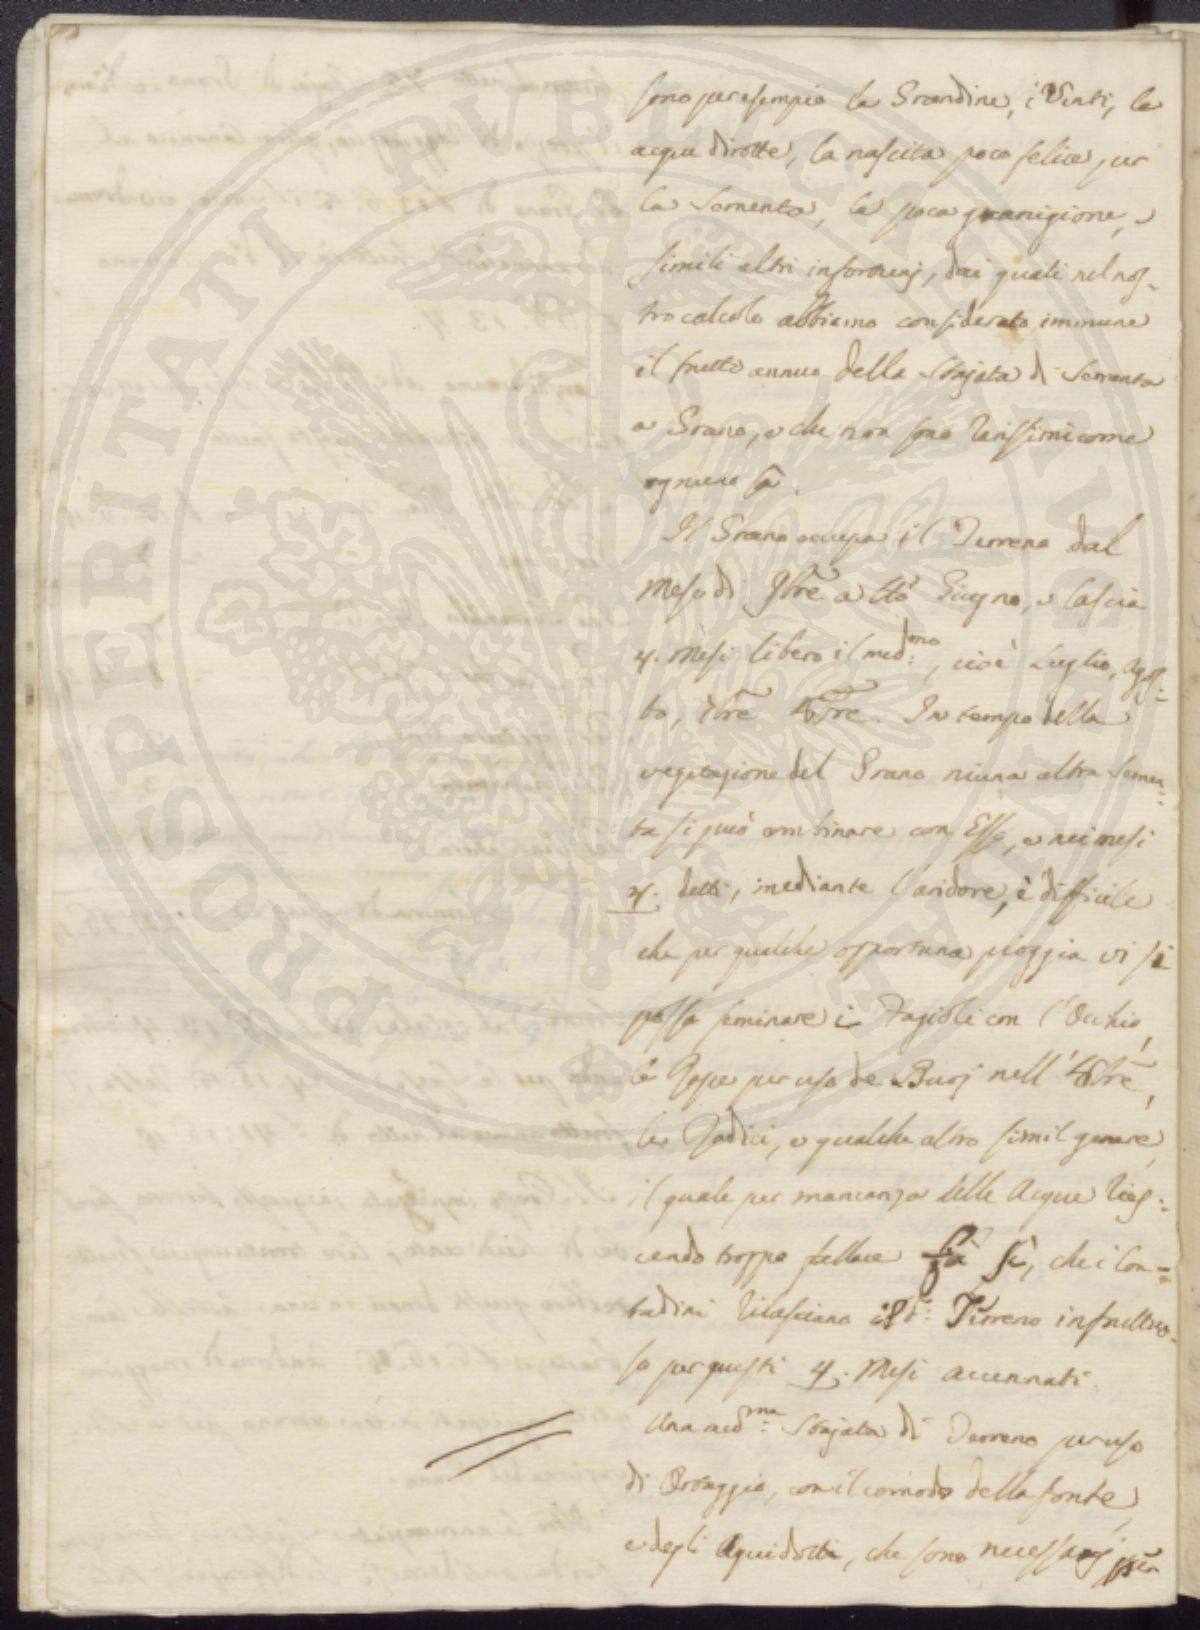 sono per esempio la Grandine, i Venti, le
acque dirotte, la nascita poco felice per
la Sementa, la poca granigione, e
simili altri infortunj, dai quali nel nos-
tro calcolo abbiamo considerato immune
il frutto annuo della Stajata di Sementa
a Grano, e che non sono rarissimi come
ognuno sà.
Il Grano occupa il Terreno dal
Mese di 9bre a tto Giugno, e lascia
4. Mesi libero il med:mo, cioè Luglio, Agos=
to, 7bre 8bre. In tempo della
vegetazione del Grano niuna altra Semen=
ta si può combinare con Esso, e nei mesi
4. detti, mediante l'aridore, è difficile
che per qualche opportuna pioggia vi si
possa seminare i Fagioli con l'Occhio,
le Rape per uso de Buoj nell'8bre,
le Radici, e qualche altro simil genere,
il quale per mancanza delle Acque ries=
cendo troppo fallace fà sì, che i Con=
tadini rilasciano il d:o Terreno infruttuo=
so per questi 4. Mesi accennati.
Una med:ma Stajata di Terreno per uso
di Ortaggio, con il comodo della fonte,
e degli Aquidotti, che sono necessarj per
PROSPERITATI PUBLICAE AUGENDAE